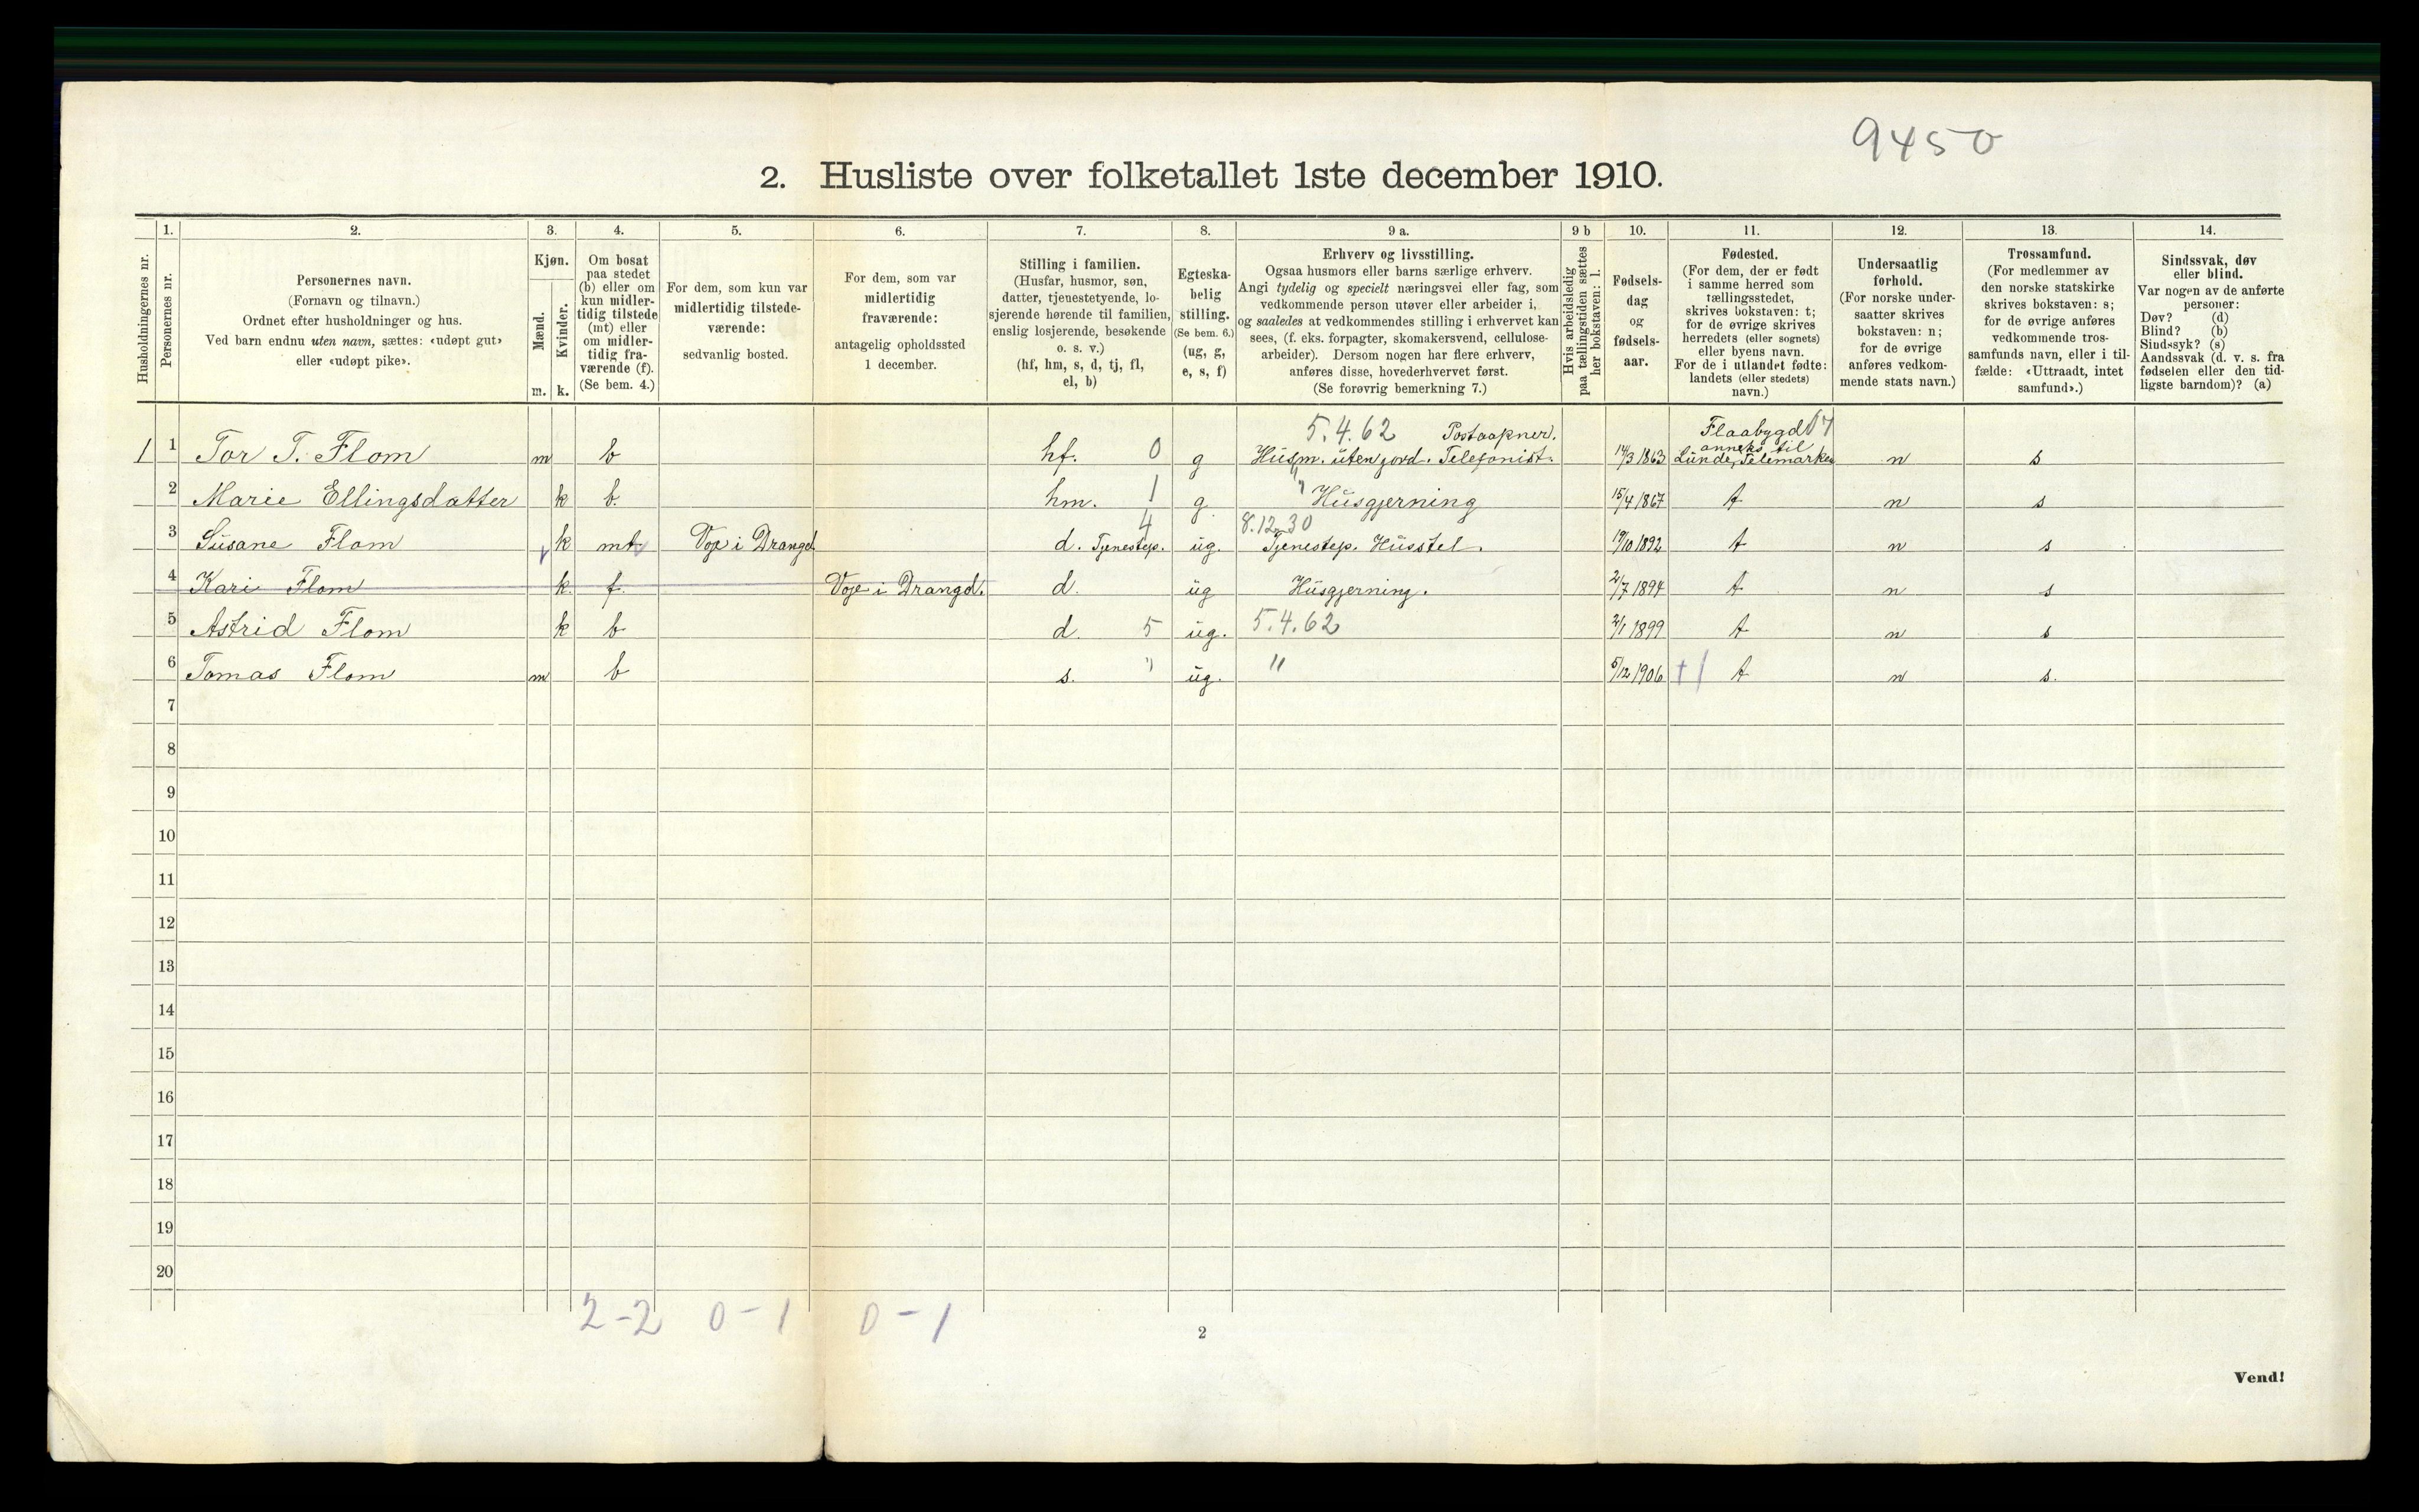 9450
2. Husliste over folketallet 1ste december 1910.
Husholdningernes nr.
1.
Personernes nr.
2.
Personernes navn.
(Fornavn og tilnavn.)
Ordnet efter husholdninger og hus.
Ved barn endnu uten navn, sættes: «udøpt gut»
eller «udøpt pike».
3.
Kjøn.
Mænd.
Kvinder.
m.
k.
4.
Om bosat
paa stedet
(b) eller om
kun midler-
tidig tilstede
(mt) eller
om midler-
tidig fra-
værende (f).
(Se bem. 4.)
5.
For dem, som kun var
midlertidig tilstede-
værende:
sedvanlig bosted.
6.
For dem, som var
midlertidig
fraværende:
antagelig opholdssted
1 december.
7.
Stilling i familien.
(Husfar, husmor, søn,
datter, tjenestetyende, lo-
sjerende hørende til familien,
enslig losjerende, besøkende
o. s. v.)
(hf, hm, s, d, tj, fl,
el, b)
8.
Egteska-
belig
stilling.
(Se bem. 6.)
(ug, g,
e, s, f)
9 a.
Erhverv og livsstilling.
Ogsaa husmors eller barns særlige erhverv.
Angi tydelig og specielt næringsvei eller fag, som
vedkommende person utøver eller arbeider i,
og saaledes at vedkommendes stilling i erhvervet kan
sees, (f. eks. forpagter, skomakersvend, cellulose-
arbeider). Dersom nogen har flere erhverv,
anføres disse, hovederhvervet først.
(Se forøvrig bemerkning 7.)
9 b
Hvis arbeidsledig
paa tællingstiden sættes
her bokstaven: l.
10.
Fødsels-
dag
og
fødsels-
aar.
11.
Fødested.
(For dem, der er født
i samme herred som
tællingsstedet,
skrives bokstaven: t;
for de øvrige skrives
herredets (eller sognets)
eller byens navn.
For de i utlandet fødte:
landets (eller stedets)
navn.)
12.
Undersaatlig
forhold.
(For norske under-
saatter skrives
bokstaven: n;
for de øvrige
anføres vedkom-
mende stats navn.)
13.
Trossamfund.
(For medlemmer av
den norske statskirke
skrives bokstaven: s;
for de øvrige anføres
vedkommende tros-
samfunds navn, eller i til-
fælde: «Uttraadt, intet
samfund».)
14.
Sindssvak, døv
eller blind.
Var nogen av de anførte
personer:
Døv? (d)
Blind? (b)
Sindssyk? (s)
Aandssvak (d. v. s. fra
fødselen eller den tid-
ligste barndom)? (a)
5.4.62 Postaapner. Flaabygd
anneks til
1 1 Tor T. Flom m b hf. 0 g Husm. uten jord. Telefonist. 14/3 1863 Lunde, Telemarken n s
2 Marie Ellingsdatter k b. hm. 1 g. " Husgjerning 15/4 1867 t n s
4 8.12.30
3 Susane Flom k mt Voje i Drangd. d. Tjenestep. ug. Tjenestep. Husstel. 19/10 1892 t n s
4 Kari Flom k. f. Voje i Drangd. d. ug Husgjerning. 2/7 1894 t n s
5 Astrid Flom k b d. 5 ug. 5.4.62 2/1 1899 t n s
6 Tomas Flom m b s. " ug. " 5/12 1906 t n s.
7
8
9
10
11
12
13
14
15
16
17
18
19
20
2-2 0-1 0-1
2
Vend!